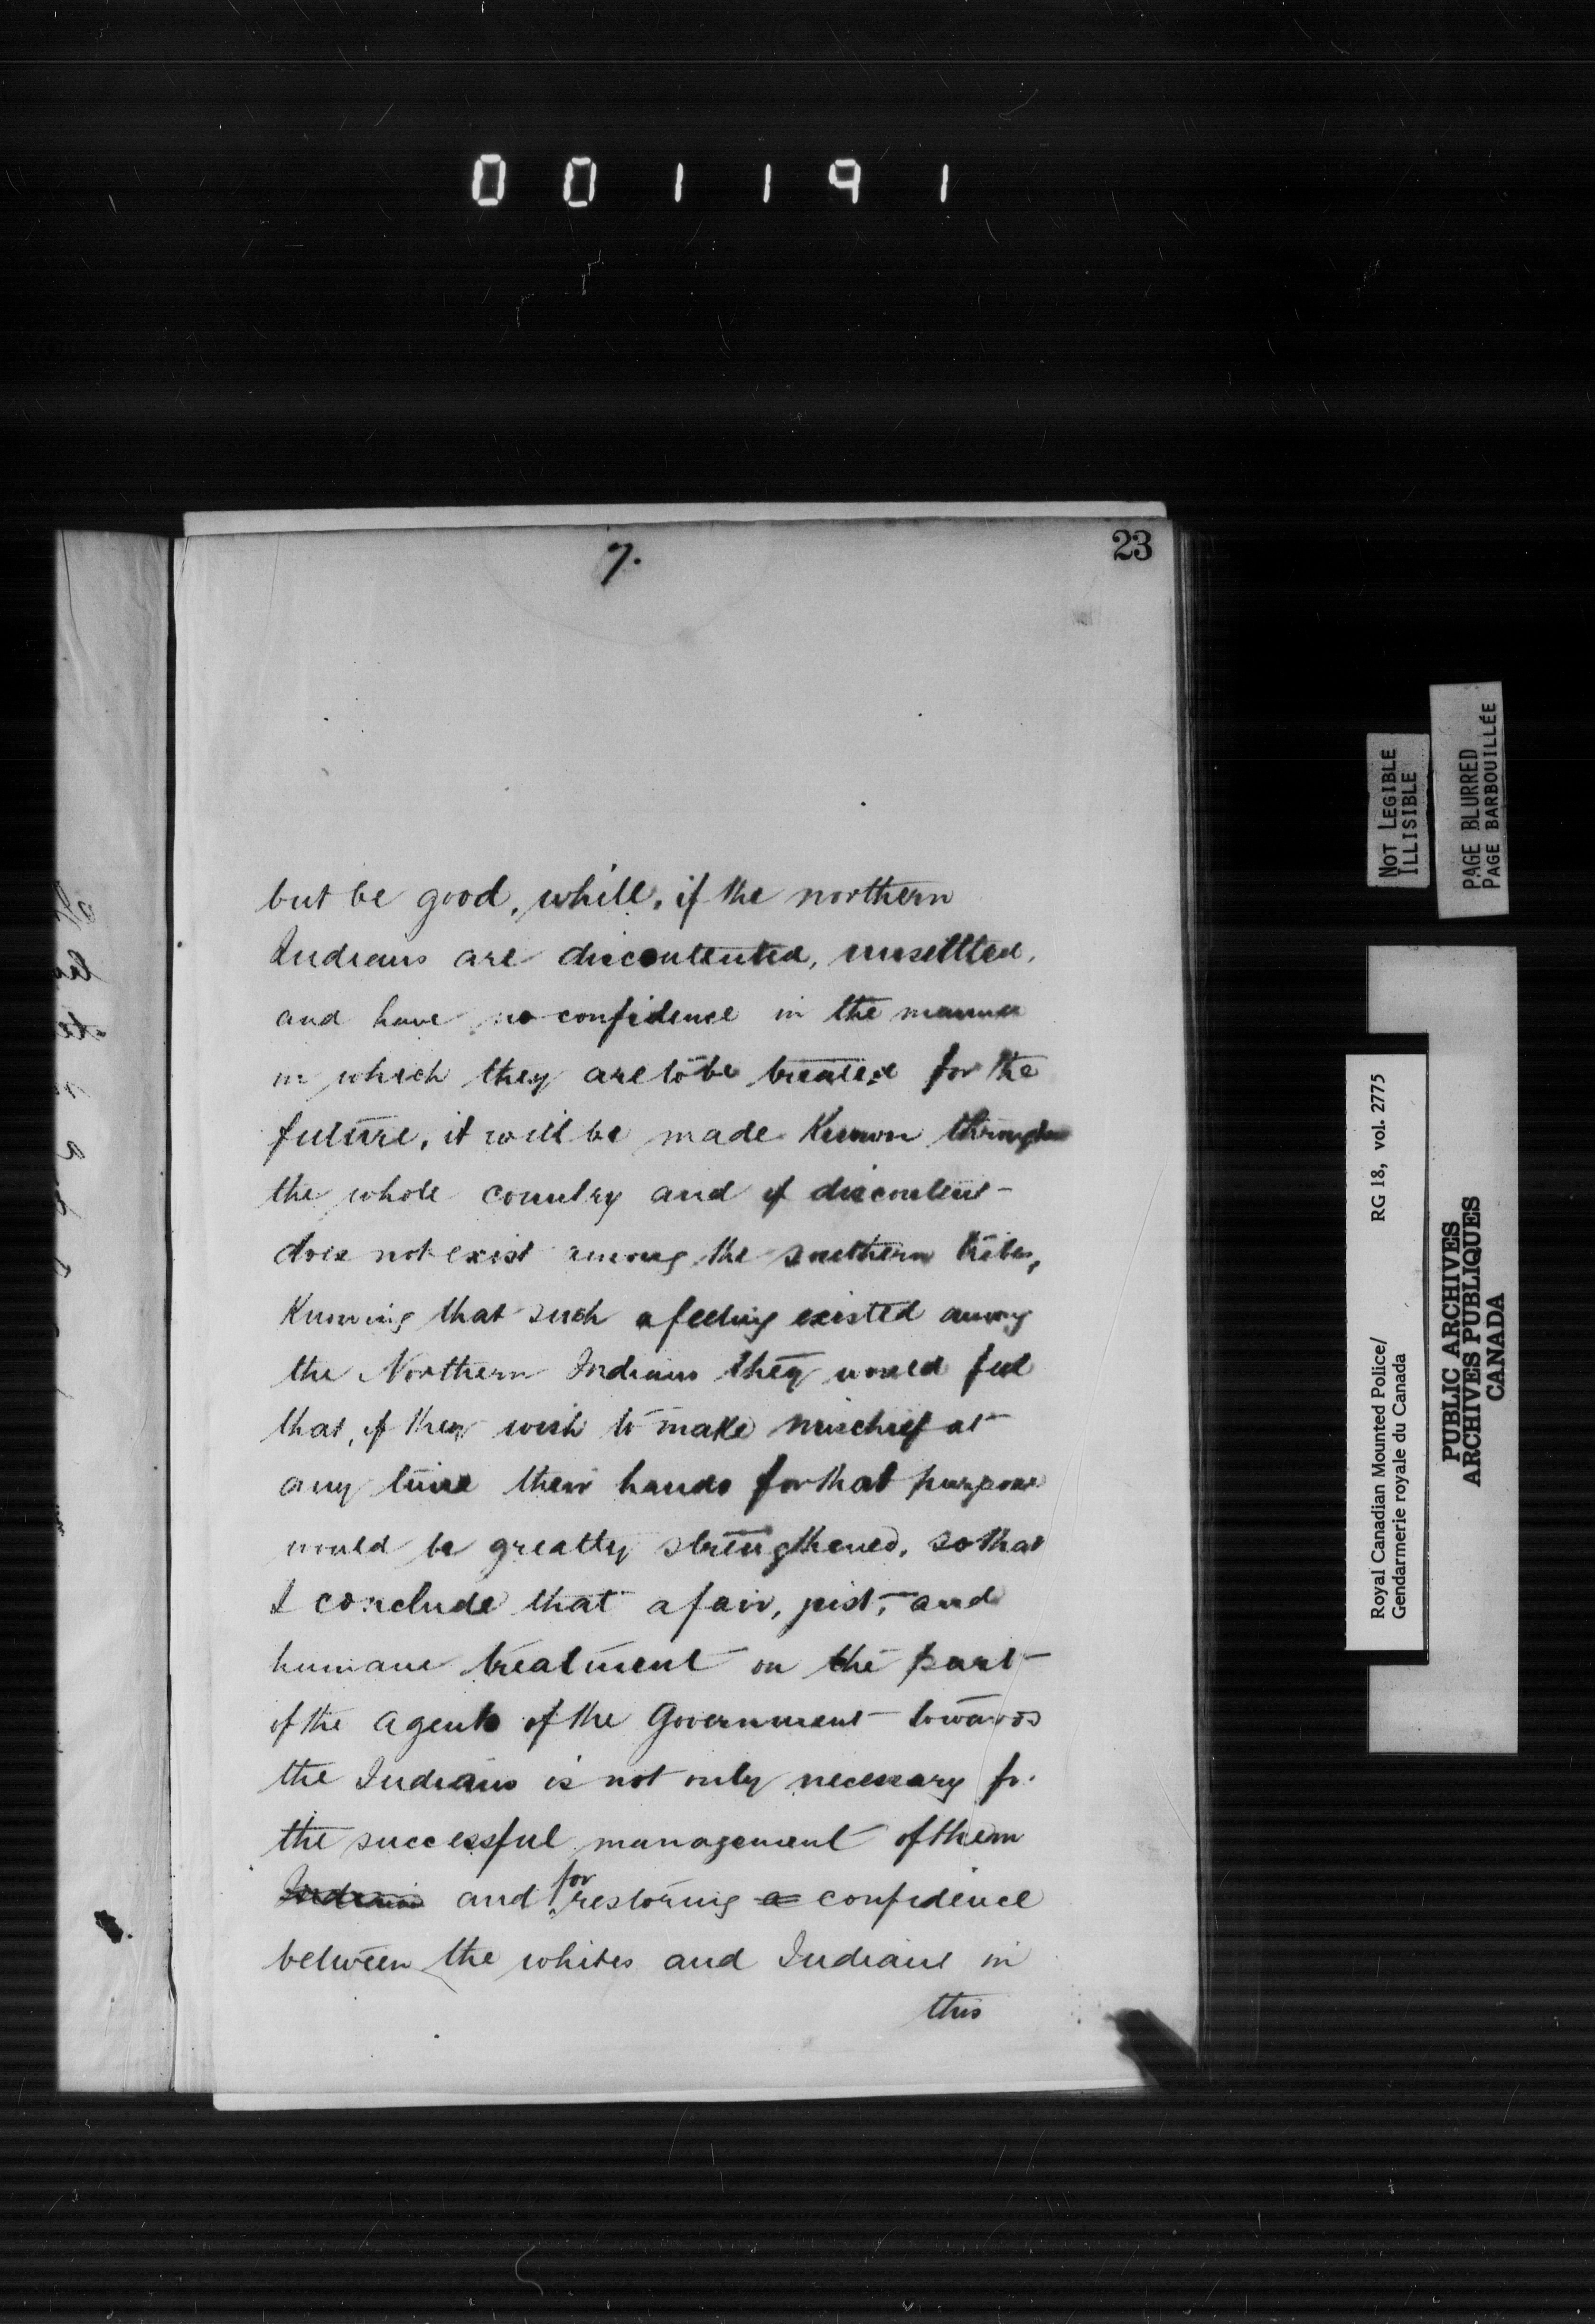 001191
23
7.
but be good, while, if the northern
Indians are discontented, unsettled,
and have no confidence in the manner
in which they are to be treated for the
future, it will be made Known through
the whole country and if discontent
does not exist among the southern tribes,
Knowing that such a feeling existed among
the Northern Indians they would feel
that, if they wish to make mischief at
any time their hands for that purpose
would be greatly strengthened, so that
I conclude that a fair, just, and
humane treatment on the part
of the agents of the Government towards
the Indians is not only necessary for
the successful management of them
Indians and for restoring a confidence
between the whites and Indians in
this
NOT LEGIBLE
ILLISIBLE
PAGE BLURRED
PAGE BARBOUILLÉE
Royal Canadian Mounted Police/ RG 18, vol. 2775
Gendarmerie royale du Canada
PUBLIC ARCHIVES
ARCHIVES PUBLIQUES
CANADA